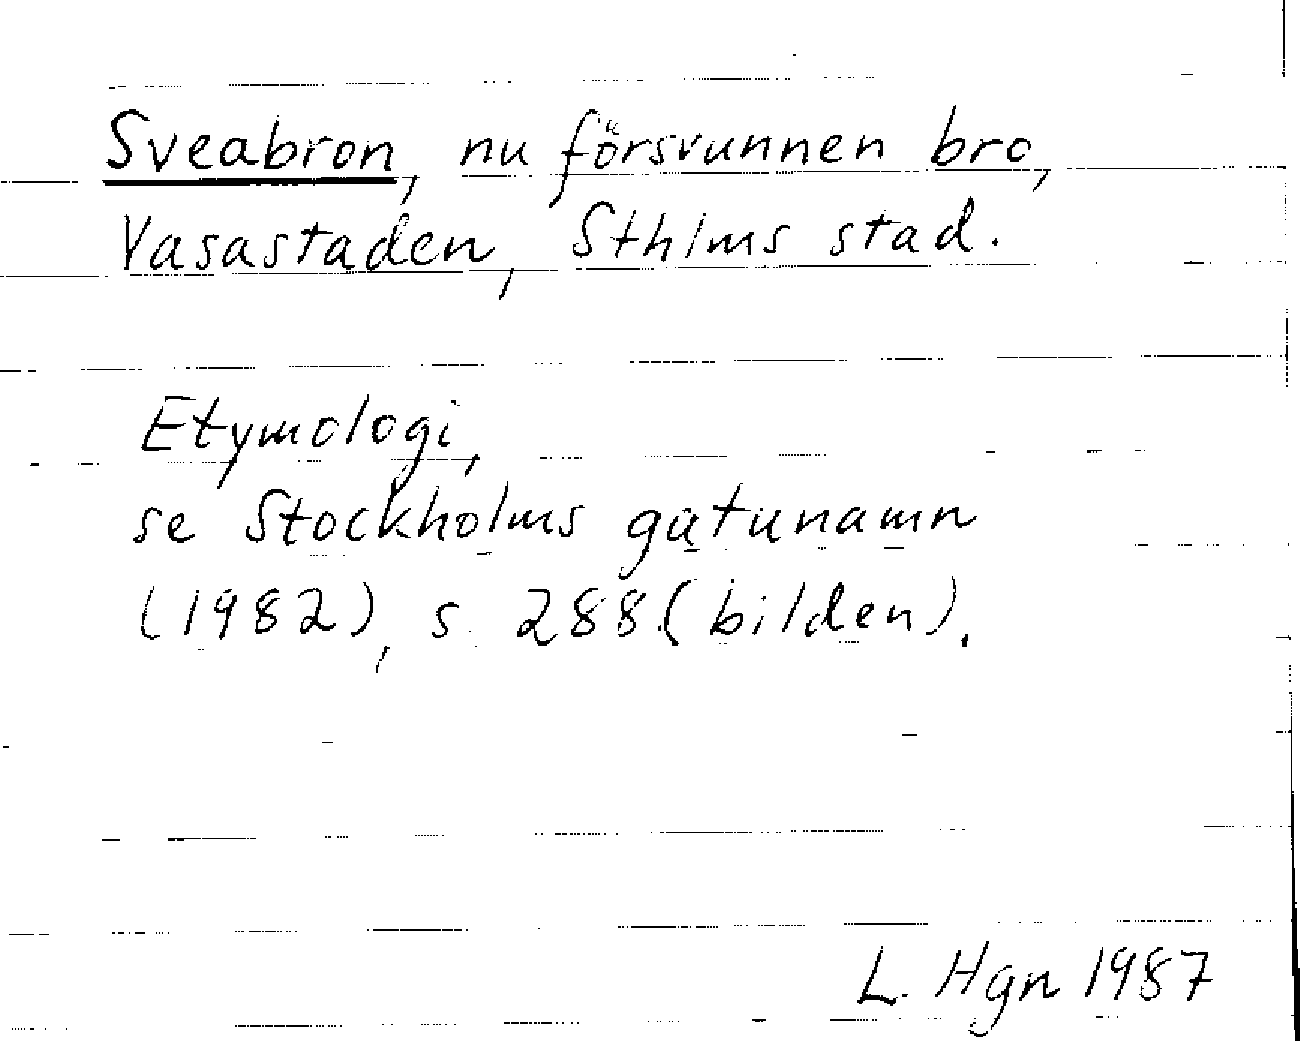 Sveabron, nu försvunnen bro,
Vasastaden, Sthlms stad.
Etymologi,
se Stockholms gatunamn
(1982), s. 288 (bilden).
L. Hgn 1987